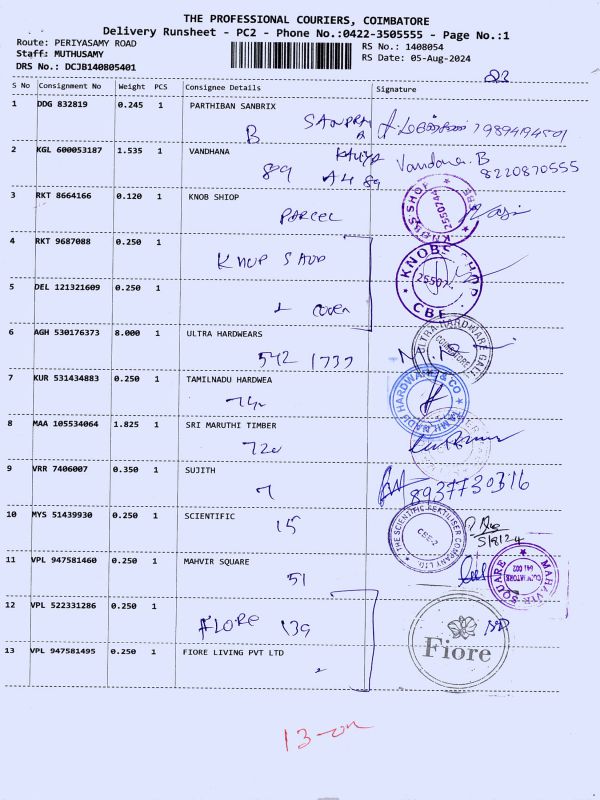 THE PROFESSIONAL COURIERS, COIMBATORE
Delivery Runsheet - PC2 - Phone No.:0422-3505555 - Page No.:1
Route: PERIYASAMY ROAD
Staff: MUTHUSAMY
DRS No.: DCJB140805401
RS No.: 1408054
RS Date: 05-Aug-2024
S No Consignment No Weight PCS Consignee Details Signature
1 DDG 832819 0.245 1 PARTHIBAN SANBRIX
B
7989494501
2 KGL 600053187 1.535 1 VANDHANA
89 A4 89
Vandana. B
8220870555
3 RKT 8664166 0.120 1 KNOB SHIOP
PARCEL
KNOBS SHOP
2550744
CBE
4 RKT 9687088 0.250 1
KNOBS SHOP
CBE
5 DEL 121321609 0.250 1
2 cover
6 AGH 530176373 8.000 1 ULTRA HARDWEARS
542 1733
ULTRA HARDWARE
COIMBATORE
7 KUR 531434883 0.250 1 TAMILNADU HARDWEA
TAMILNADU HARDWARE & CO
8 MAA 105534064 1.825 1 SRI MARUTHI TIMBER
720
9 VRR 7406007 0.350 1 SUJITH
7
8937730316
10 MYS 51439930 0.250 1 SCIENTIFIC
15
THE SCIENTIFIC FERTILISER COMPANY LTD
CBE-2
5/8/24
11 VPL 947581460 0.250 1 MAHVIR SQUARE
51
MAHAVIR SQUARE
COIMBATORE
641 002
12 VPL 522331286 0.250 1
FIORE 139
Fiore
13 VPL 947581495 0.250 1 FIORE LIVING PVT LTD
13-on